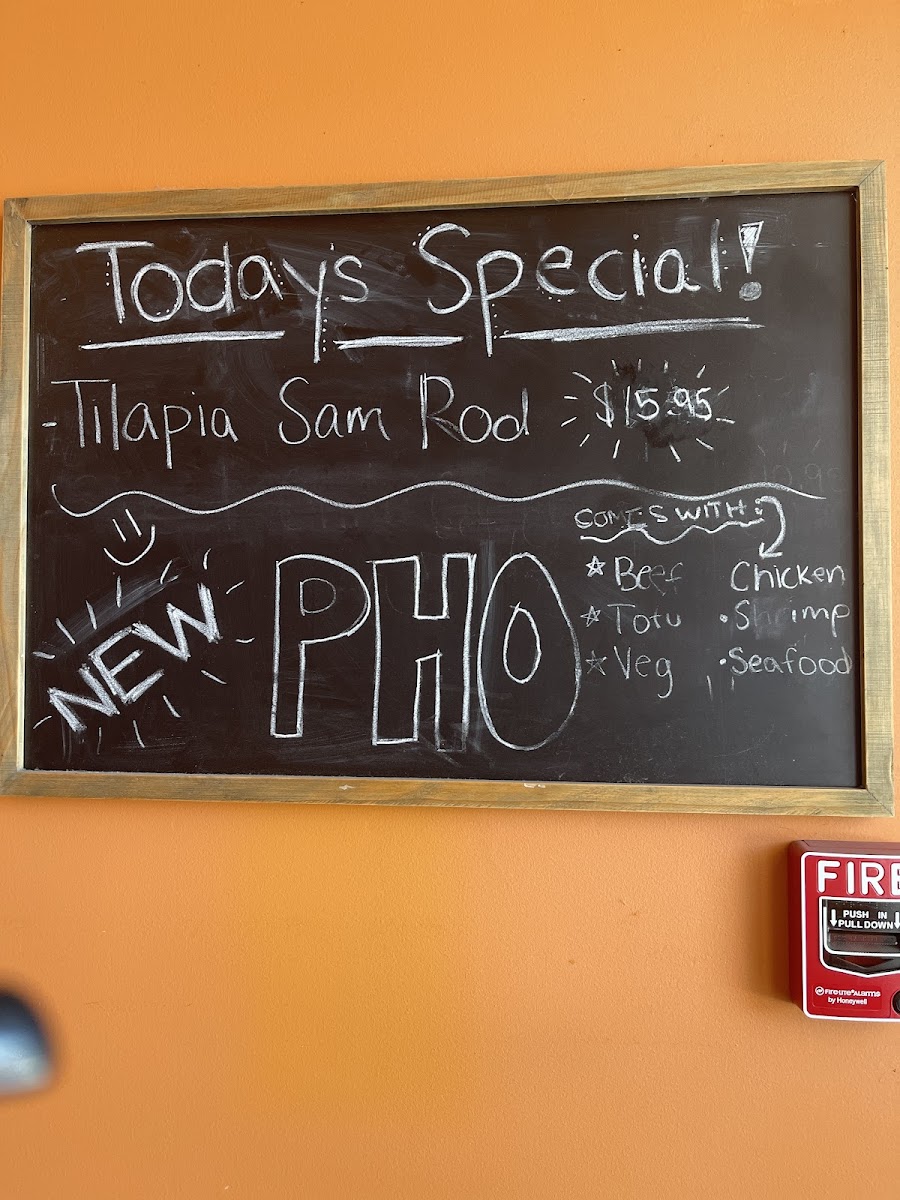 Today's Special!
-Tilapia Sam Rod $15.95
NEW
PHO
COMES WITH:
☆ Beef Chicken
☆ Tofu • Shrimp
☆ Veg • Seafood
FIRE
PUSH IN
PULL DOWN
FIRE•LITE ALARMS
by Honeywell